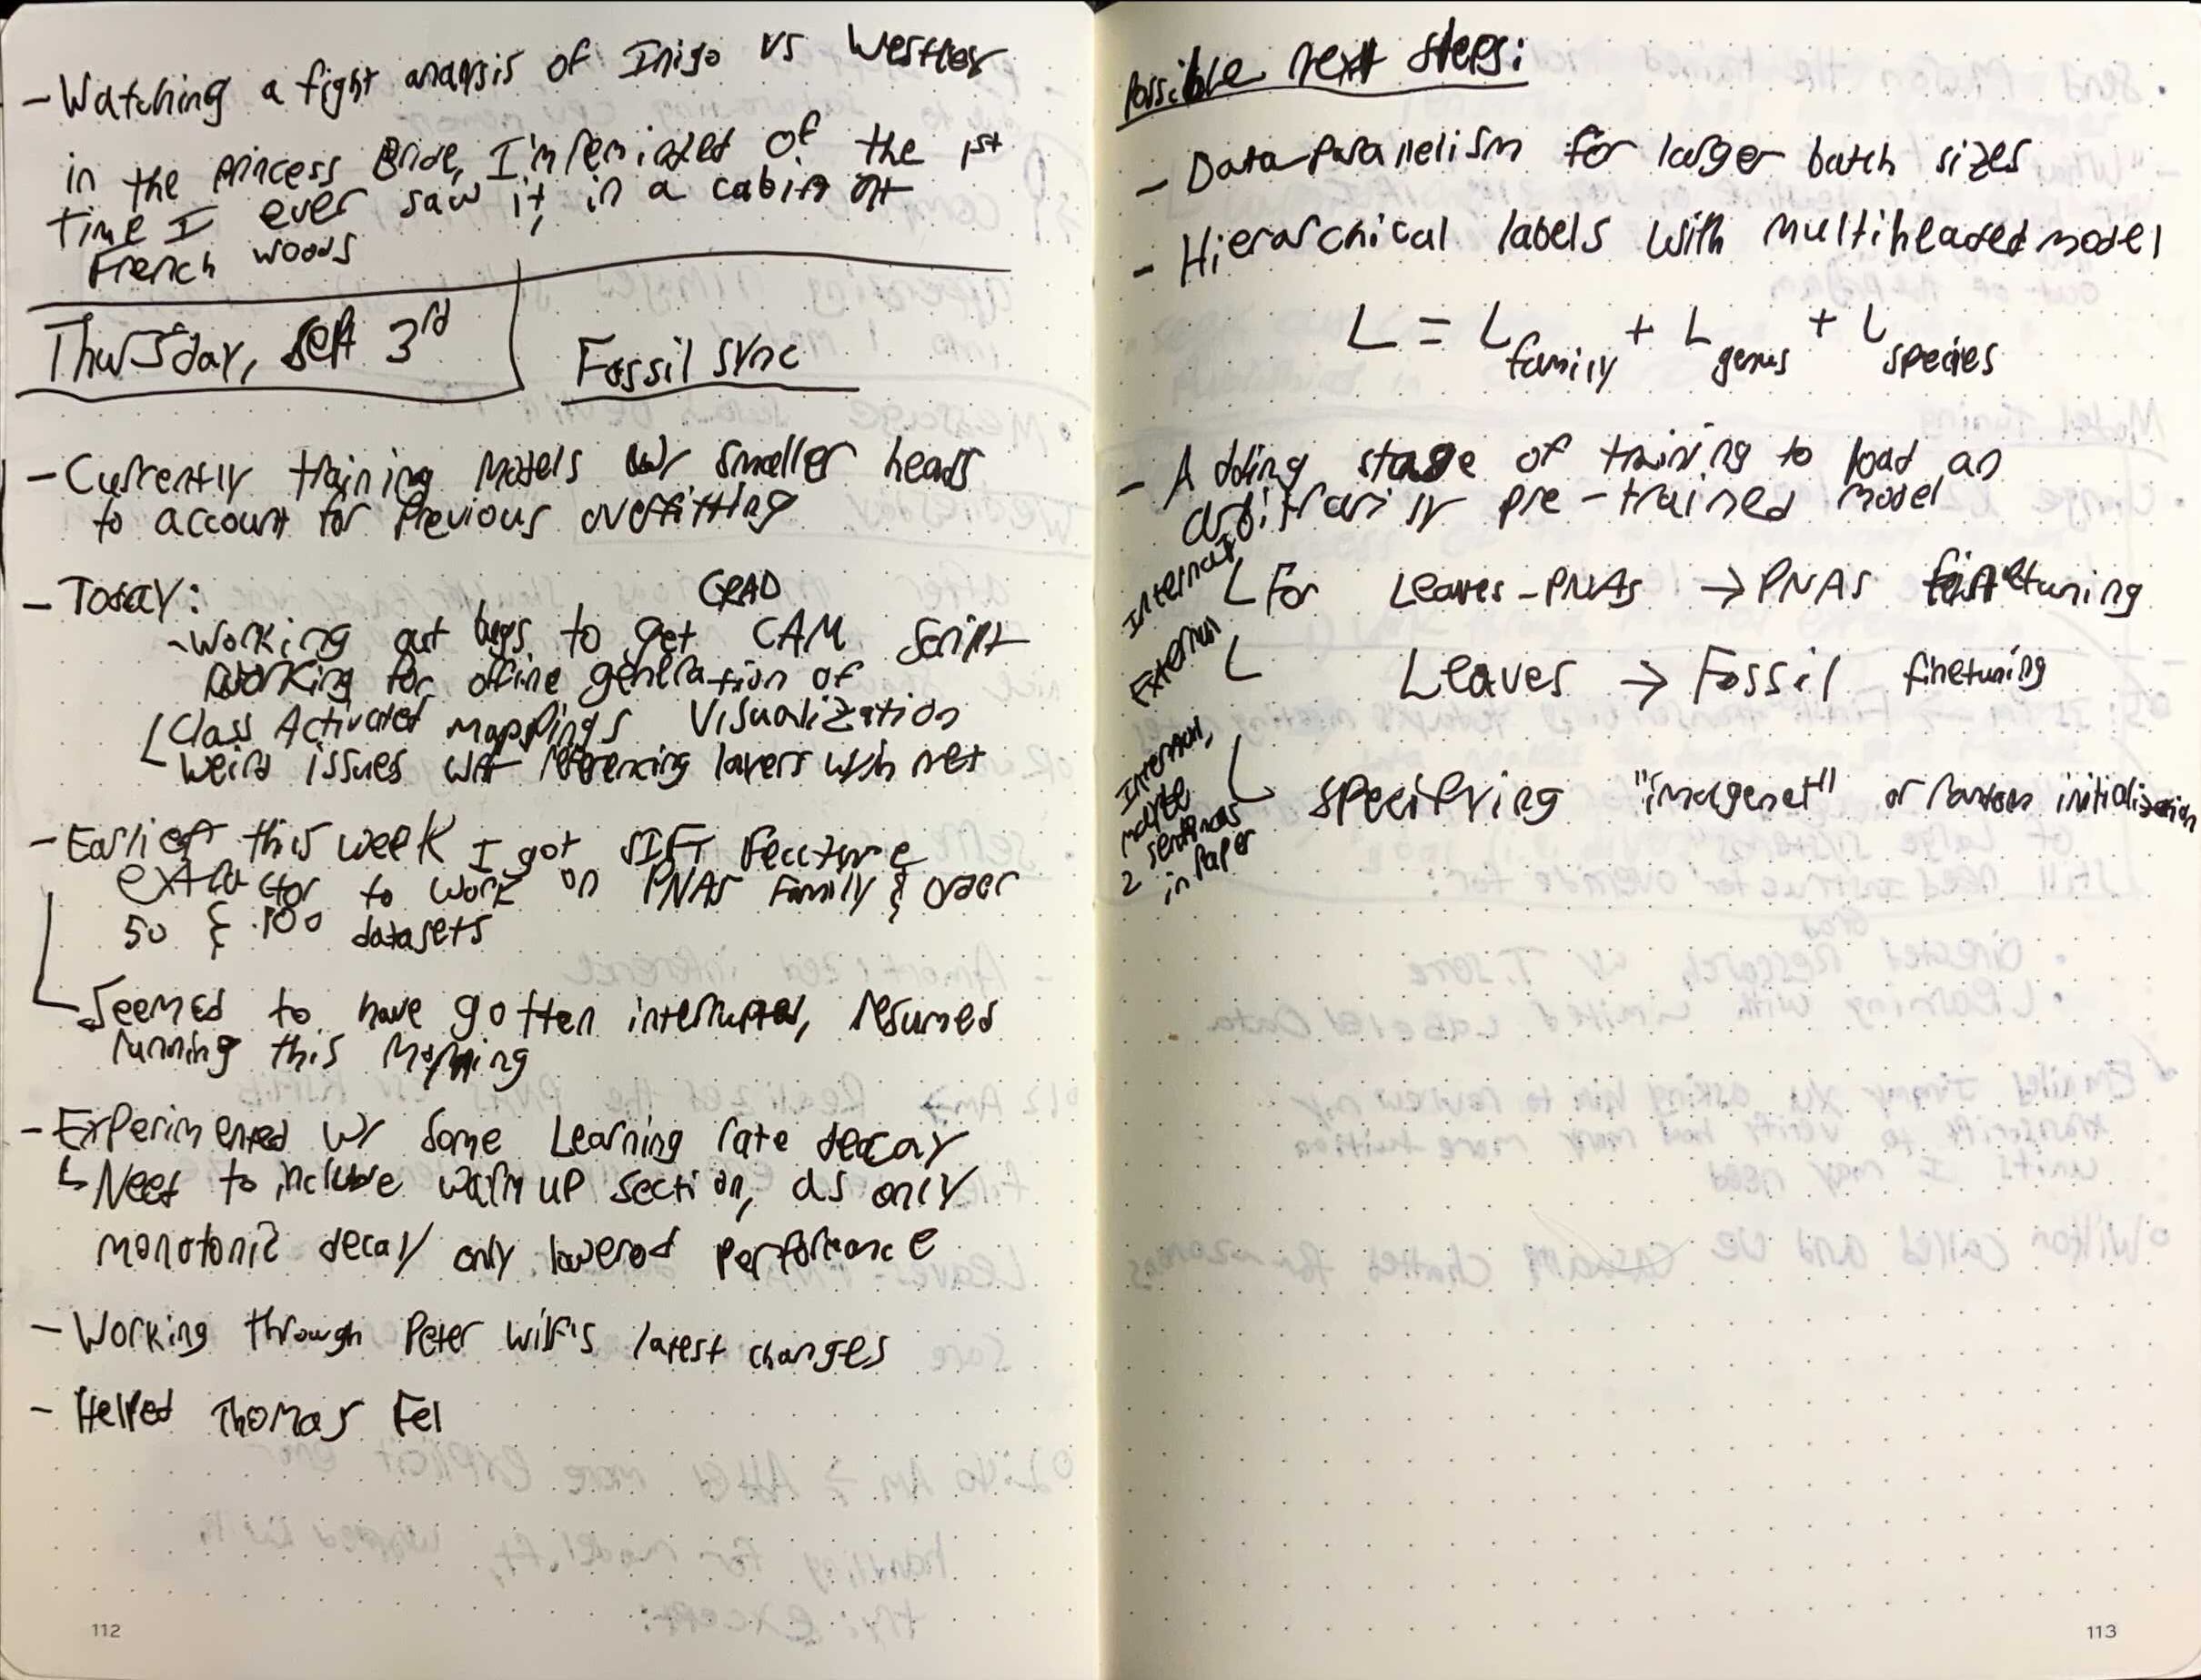 - Watching a fight analysis of Inigo vs Westley
in the Princess Bride, I'm reminded of the 1st
time I ever saw it, in a cabin at
French Woods
Thursday, Sept 3rd
Fossil sync
- Currently training models w/ smaller heads
to account for previous overfitting
- Today:
- Working out bugs to get GRAD CAM script
working for offline generation of
Class Activated Mappings Visualization
weird issues w/ referencing layers with net
- Earlier this week I got SIFT feature
extractor to work on PNAS family & order
50 & 100 datasets
Seemed to have gotten interrupted, resumed
running this morning
- Experimented w/ some Learning rate decay
↳ Need to include warm up section, as only
monotonic decay only lowered performance
- Working through Peter Wilf's latest changes
- Helped Thomas Fel
112
Possible next steps:
- Data Parallelism for larger batch sizes
- Hierarchical labels with multiheaded model
L = L family + L genus + L species
- Adding stage of training to load an
arbitrarily pre-trained model
Internal
For Leaves-PNAS → PNAS finetuning
External
Leaves → Fossil finetuning
Internal,
maybe
2 sentences
in paper
specifying "imagenet" or random initialization
113